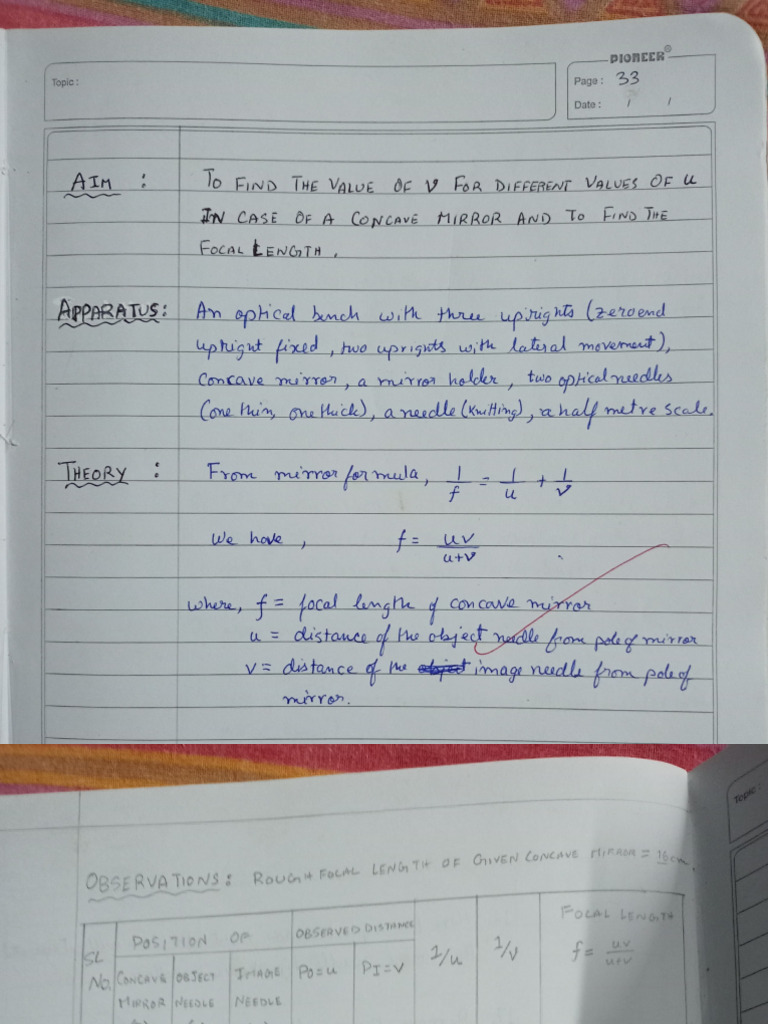 PIONEER®
Topic :
Page : 33
Date : / /
AIM : TO FIND THE VALUE OF v FOR DIFFERENT VALUES OF u
IN CASE OF A CONCAVE MIRROR AND TO FIND THE
FOCAL LENGTH .
APPARATUS : An optical bench with three uprights (zero end
upright fixed , two uprights with lateral movement),
concave mirror , a mirror holder , two optical needles
(one thin, one thick), a needle (knitting), a half metre scale.
THEORY : From mirror formula, 1/f = 1/u + 1/v
We have , f = uv/u+v
where, f = focal length of concave mirror
u = distance of the object needle from pole of mirror
v = distance of the image needle from pole of
mirror.
Topic :
OBSERVATIONS : ROUGH FOCAL LENGTH OF GIVEN CONCAVE MIRROR = 16cm.
SL No. POSITION OF OBSERVED DISTANCE 1/u 1/v FOCAL LENGTH f = uv/u+v
CONCAVE MIRROR OBJECT NEEDLE IMAGE NEEDLE PO=u PI=v